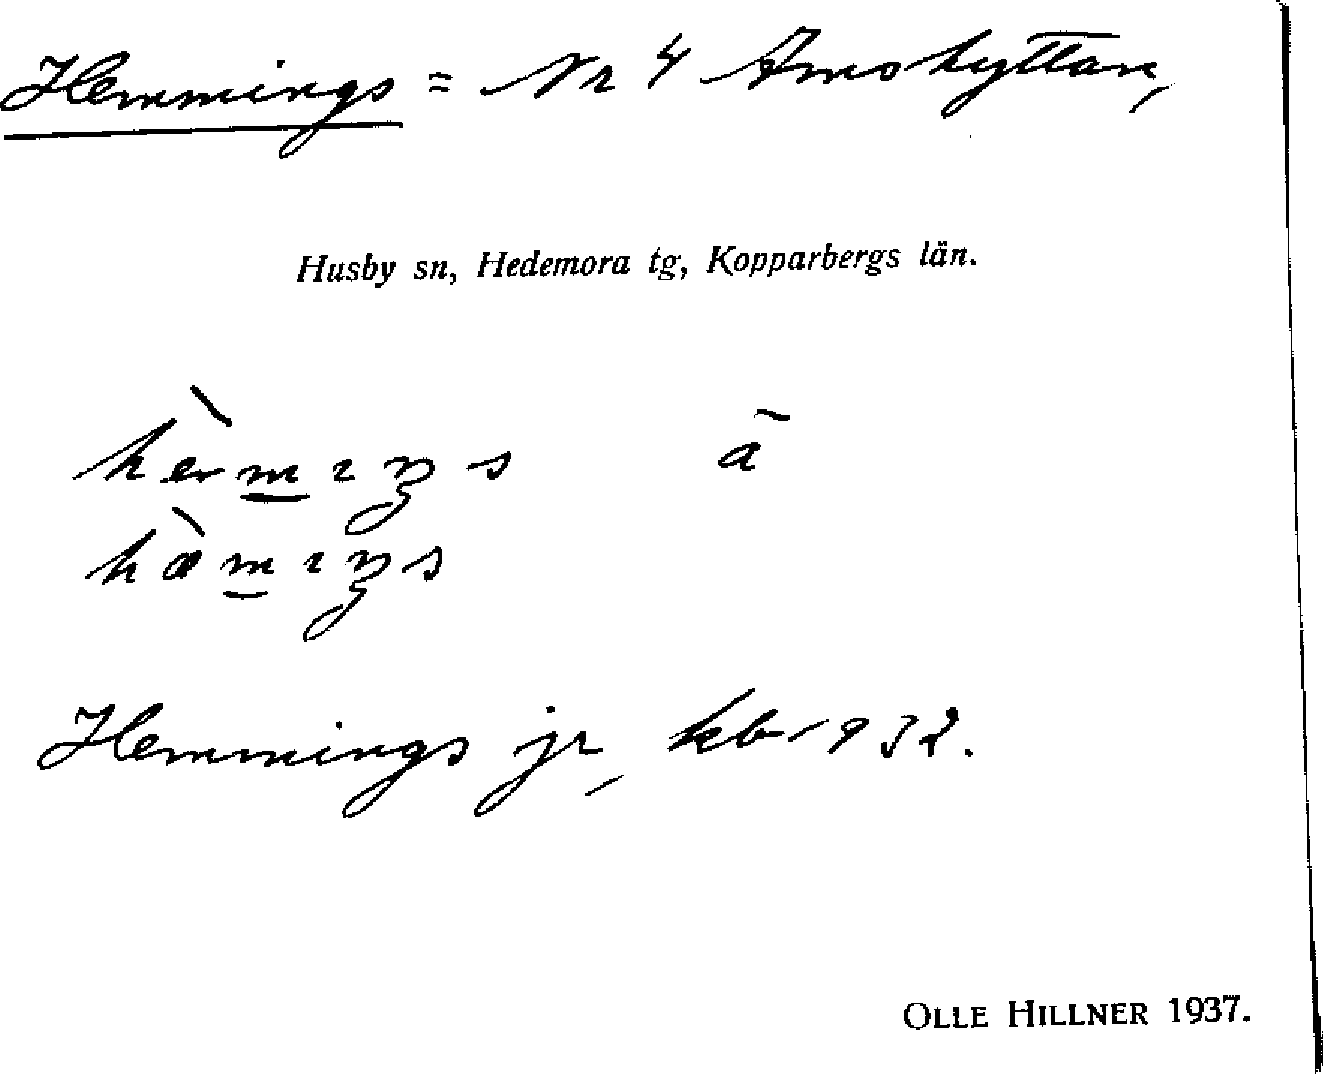 Hemmings = Nr 4 Amohyttan,
Husby sn, Hedemora tg, Kopparbergs län.
ã
Hemmings jr, kb 1932.
OLLE HILLNER 1937.